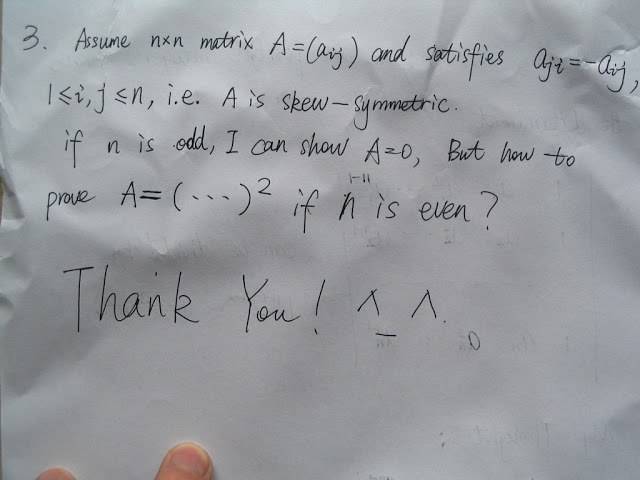 3. Assume n×n matrix A=(aij) and satisfies aji=-aij,
1≤i,j≤n, i.e. A is skew-symmetric.
if n is odd, I can show A=0, But how to
prove A=(...)² if n is even?
Thank You! ^_^.